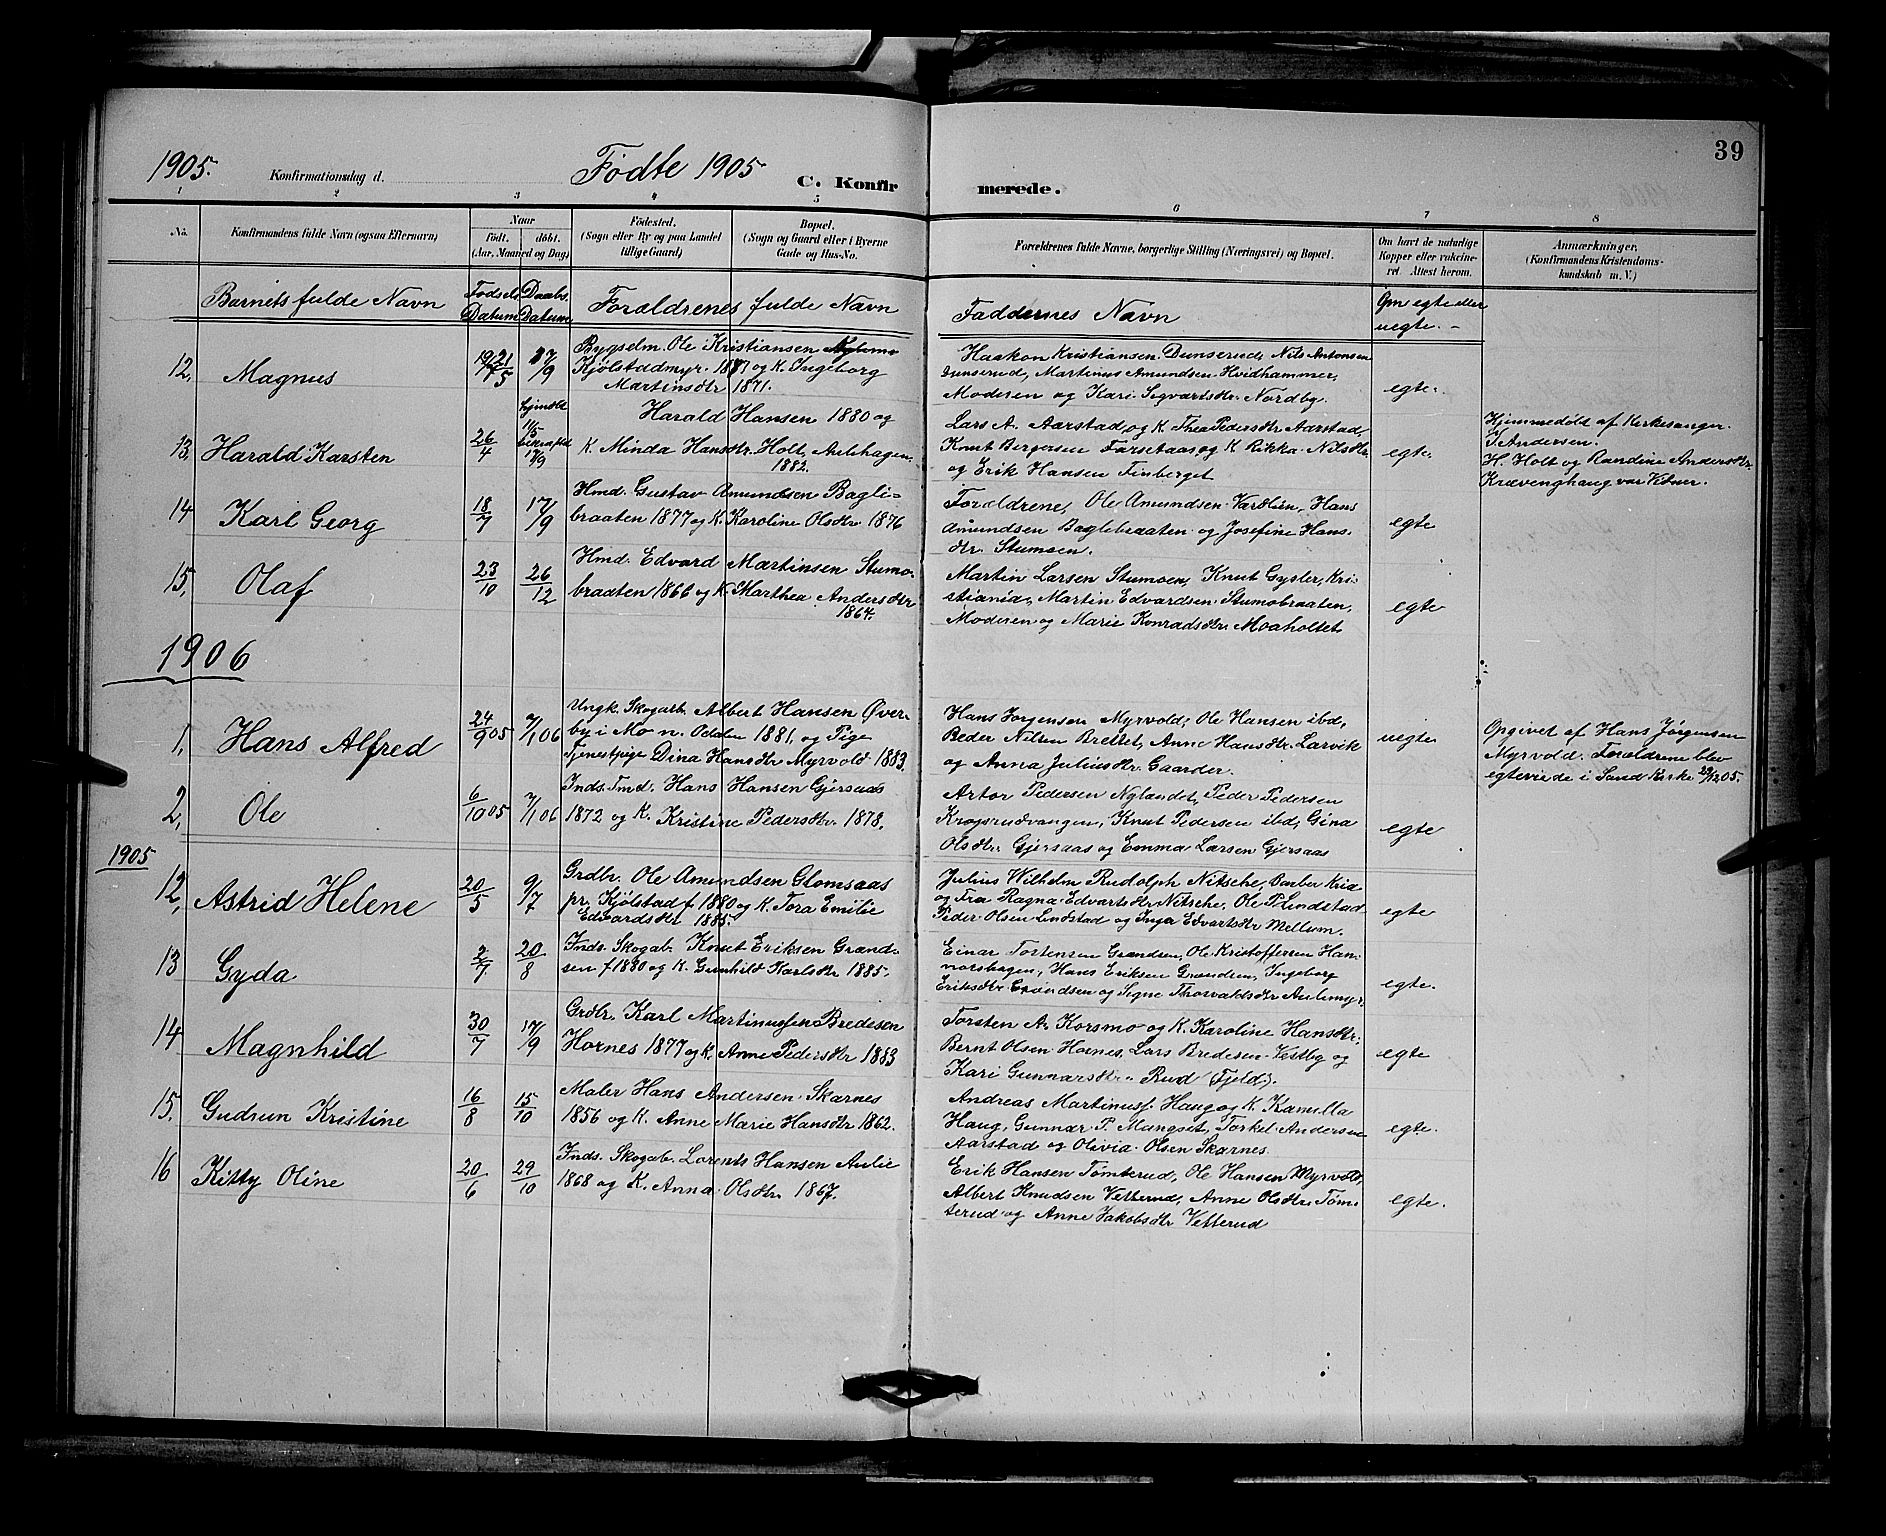 39
1905. Konfirmationsdag d. Fødte 1905 C. Konfir merede.
1 2 3 4 5 6 7 8
No. Konfirmandens fulde Navn (ogsaa Efternavn) Naar født. døbt. (Aar, Maaned og Dag) Fødested. (Sogn eller By og paa Landet tillige Gaard) Bopæl. (Sogn og Gaard eller i Byerne Gade og Hus-No. Forældrenes fulde Navne, borgerlige Stilling (Næringsvei) og Bopæl. Om havt de naturlige Kopper eller vakcineret. Attest herom. Anmærkninger. (Konfirmandens Kristendomskundskab m. V.)
Barnets fulde Navn Fødsels Datum Daabs Datum Foraldrenes fulde Navn Faddernes Navn Om egte eller uegte. -
12, Magnus 17/9
Bygselm. Ole Kristiansen
Kjølstadmyr. 1871 og K. Ingeborg
Martinsdtr 1871.
Haakon Kristiansen Dunserud, Nils Antonsen
Dunserud, Martinus Amundsen Hvidhammer,
Moderen og Kari Sigvartsdtr. Nordby.
egte.
13, Harald Karsten 26/4 hjemdøbt 11/5 bekræftet 17/9
Harald Hansen 1880 og
K. Minda Hansdtr. Holt, Aulehagen
1882.
Lars A. Aarstad og K. Thea Pedersdtr Aarstad
Knut Bergersen Farsetaas og K Rikka Nilsdtr
og Erik Hansen Finberget
egte.
Hjemmedøbt af Kirkesanger
Andersen.
H. Holt og Randine Andersdtr
Krævenghaug var Vidner.
14 Karl Georg 18/7 17/9
Hmd. Gustav Amundsen Bagli-
braaten 1877 og K. Karoline Olsdtr 1876
Foraldrene, Ole Amundsen Vardlien, Hans
Amundsen Baglebraaten og Josefine Hans-
dtr. Stumoen.
egte
15, Olaf 23/10 26/12
Hmd. Edvard Martinsen Stumo-
braaten 1866 og K. Marthea Andersdtr
1864.
Martin Larsen Stumoen, Knut Gysler, Kri-
stiania, Martin Edvardsen Stumobraaten,
Moderen og Marie Konradsdtr Moaholtet
egte
1906
1, Hans Alfred 24/9 05 7/1 06
Ungk. Skogarb. Albert Hansen Øver-
by i Mo n. Odalen 1881, og Pige
Tjenestpige Dina Hansdtr Myrvold 1883.
Hans Jørgensen Myrvold; Ole Hansen ibd,
Peder Nilsen Brettet, Anne Hansdtr. Larvik
og Anna Juliusdtr. Gaarder.
uegte
Opgivet af Hans Jørgensen
Myrvold. Foraldrene blev
egteviede i Sand Kirke 29/12 05.
2, Ole 6/10 05 7/1 06
Inds. Tmd. Hans Hansen Gjersaas
1872 og K. Kristine Pedersdtr. 1878.
Artor Pedersen Nylandet, Peder Pedersen
Krogsrudvangen, Knut Pedersen ibd, Gina
Olsdtr. Gjersaas og Emma Larsen Gjersaas
egte
1905
12, Astrid Helene 20/5 9/7
Grdbr. Ole Amundsen Glomsaas
pr. Kjølstad f. 1880 og K. Tora Emilie
Edvardsdtr 1885.
Julius Wilhelm Rudolph Nitsche, Barber Kria
og Frå Ragna Edvartsdtr Nitsche, Ole P. Lindstad
Peder Olsen Lindstad og Inga Edvartsdtr Mellum.
egte
13 Gyda 2/7 20/8
Inds. Skogab. Knut Eriksen Grænd-
sen f 1880 og K. Gunhild Karlsdtr 1885.
Einar Torstensen Grændsen, Ole Kristoffersen Ham-
marshagen, Hans Eriksen Grændsen, Ingeborg
Eriksdtr Grændsen og Signe Thorvaldsdtr Aulimyr.
egte.
14 Magnhild 30/7 17/9
Grdbr. Karl Martinussen Bredesen
Hornes 1877 og K. Anne Pedersdtr 1883
Torsten A. Korsmo og K. Karoline Hansdtr.,
Bernt Olsen Hornes, Lars Bredesen Vestby og
Kari Gunnarsdtr. Rud (Fjeld).
egte
15. Gudrun Kristine 16/8 15/10
Maler Hans Andersen Skarnes
1856 og K. Anne Marie Hansdtr 1862.
Andreas Martinusf. Haug og K. Kamilla
Haug, Gunnar P. Mangset, Torkel Andersen
Aarstad og Olivia Olsen Skarnes.
egte.
16 Kitty Oline 20/6 29/10
Inds. Skogab. Lorents Hansen Aulie
1868 og K. Anna Olsdtr. 1867.
Erik Hansen Tømterud, Ole Hansen Myrvold,
Albert Knudsen Vetterud, Anne Olsdtr. Tøm-
terud og Anne Jakobsdtr Vetterud
egte.